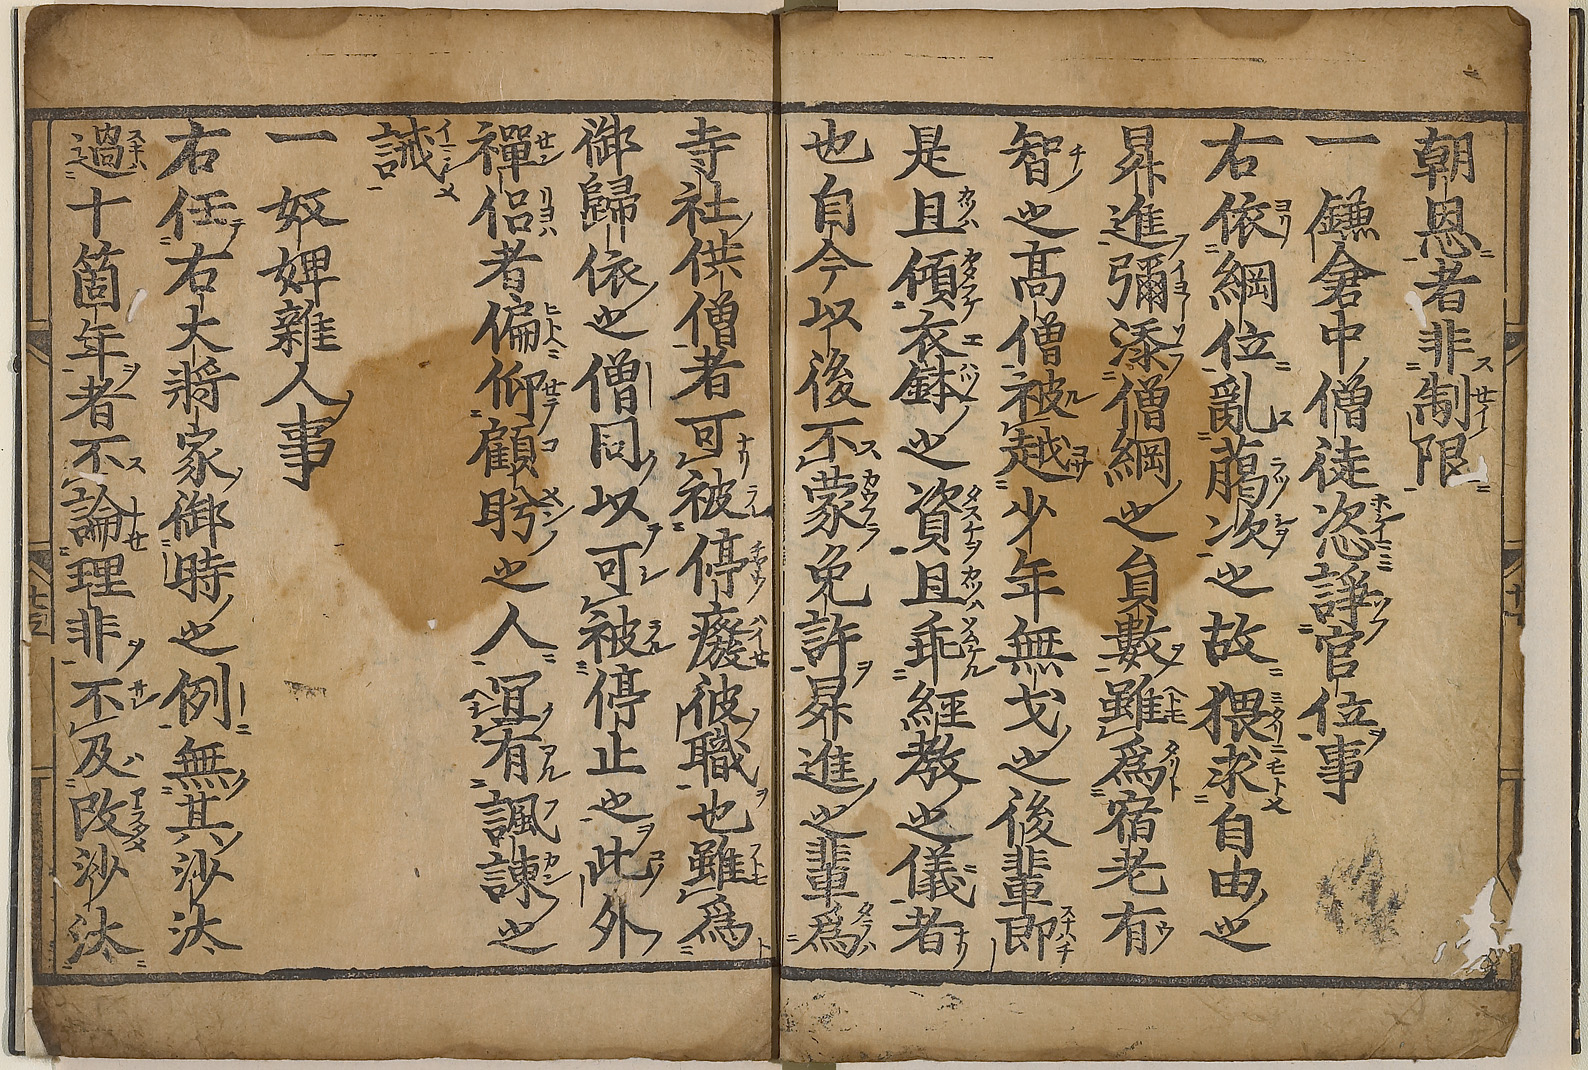 朝恩者非制限
一鎌倉中僧徒恣諍官位事
右依綱位亂﨟次之故猥求自由之
昇進彌添僧綱之員數雖爲宿老有
智之高僧被越少年無戈之後輩即
是且傾衣鉢之資且乖經教之儀者
也自今以後不蒙免許昇進之輩爲
寺社供僧者可被停廢彼職也雖爲
御歸依之僧同以可被停止之此外
禪侶者偏仰顧眄之人冝有諷諌之
誡
一奴婢雜人事
右任右大將家御時之例無其沙汰
過十箇年者不論理非不及改沙汰